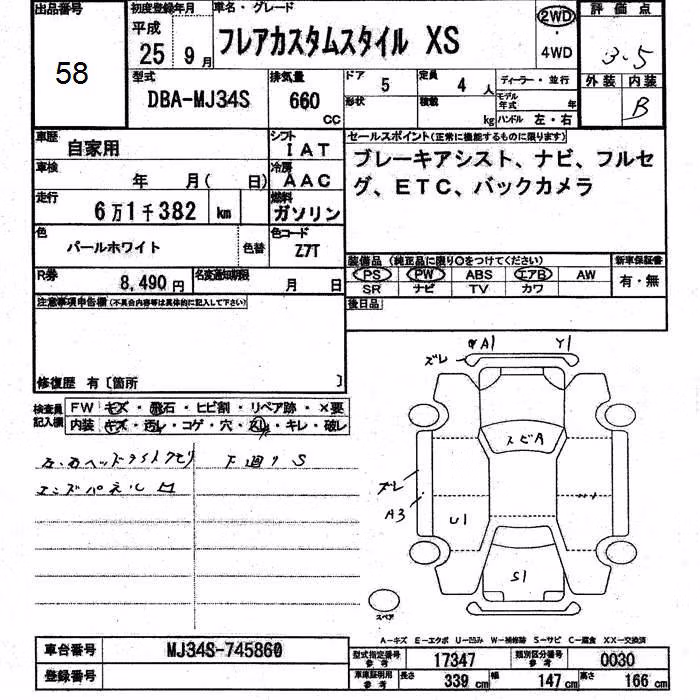 出品番号
58
初度登録年月
平成
25 9月
車名・グレード
フレアカスタムスタイル XS
2WD
4WD
評価点
3.5
外装 内装
B
型式
DBA-MJ34S
排気量
660
cc
ドア
5
定員
4 人
形状
積載
kg
ディーラー・並行
モデル年式 年
ハンドル 左・右
車歴
自家用
シフト
IAT
車検
年 月( 日)
冷房
AAC
走行
6万1千382 km
燃料
ガソリン
色
パールホワイト
色替
色コード
Z7T
R券
8,490円
名変通知期限
月 日
セールスポイント(正常に機能するものに限ります)
ブレーキアシスト、ナビ、フルセ
グ、ETC、バックカメラ
装備品(純正品に限り○をつけてください)
新車保証書
PS PW ABS エアB AW
SR ナビ TV カワ
有・無
後日品
注意事項申告欄(不具合内容等は具体的に記入して下さい)
修復歴 有〔箇所 〕
検査員
記入欄
FW キズ・飛石・ヒビ割・リペア跡・×要
内装 キズ・汚レ・コゲ・穴・スレ・キレ・破レ
左右ヘッドライトクモリ
下廻りS
エンドパネル
ズレ
A1
Y1
スビA
ズレ
A3
U1
S1
スペア
A−キズ E−エクボ U−凹み W−補修跡 S−サビ C−腐食 XX−交換済
車台番号
MJ34S-745860
登録番号
型式指定番号
参考
17347
類別区分番号
参考
0030
車庫証明用
参考
長さ 339 cm
幅 147 cm
高さ 166 cm